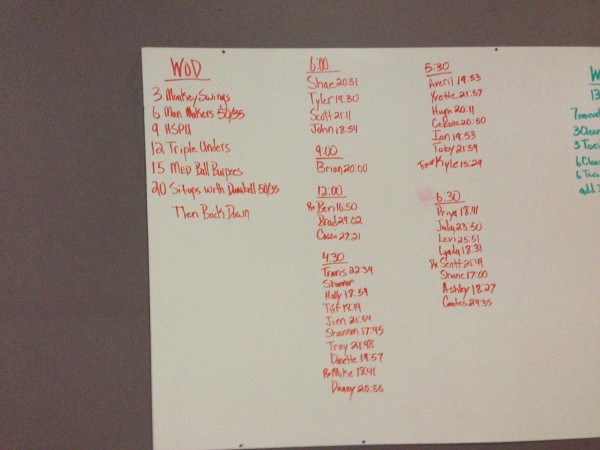 WOD
3 Monkey Swings
6 Man Makers 50/35
9 HSPU
12 Triple Unders
15 Med Ball Burpees
20 Situps with Dumbell 50/35
Then Back Down
6:00
Shae 20:51
Tyler 19:30
Scott 21:11
John 18:54
9:00
Brian 20:00
12:00
Rx Ben 16:50
Brad 29:02
Casey 27:21
4:30
Travis 22:34
Shannon
Holly 18:59
Tiff 18:19
Jim 21:54
Shannon 17:45
Troy 21:48
Danette 19:57
Rx Mike 18:41
Danny 20:55
5:30
Averil 19:53
Yvette 21:57
Hugh 20:11
Celeste 20:50
Ian 19:53
Toby 21:59
Kyle 15:29
6:30
Priya 18:41
Julia 23:50
Levi 25:51
Lynda 18:31
Rx Scott 21:19
Shane 17:00
Ashley 18:27
Coates 24:35
W
13
3 Clean
6 Clea
add